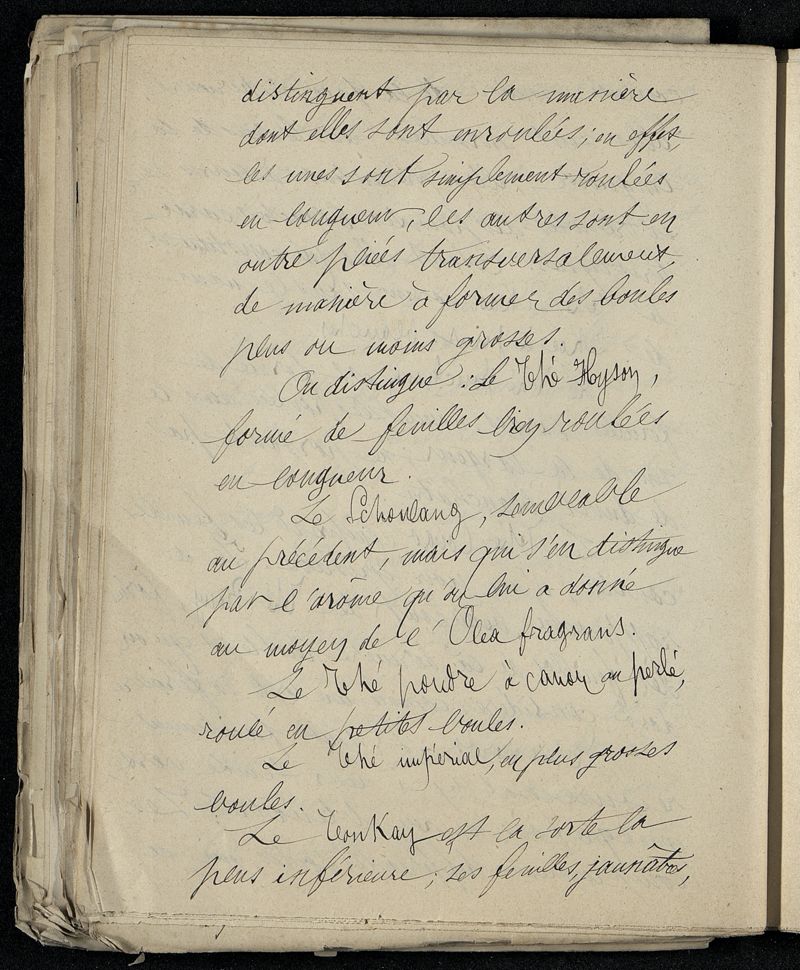 distinguent par la manière
dont elles sont enroulées; en effet,
les unes sont simplement roulées
en longueur, les autres sont en
outre pliées transversalement,
de manière à former des boules
plus ou moins grosses.
On distingue: Le Thé Hyson,
formé de feuilles bien roulées
en longueur.
Le Schoulang, semblable
au précédent, mais qui s'en distingue
par l'arôme qu'on lui a donné
au moyen de l'Olea fragrans.
Le Thé poudre à canon ou perlé,
roulé en petites boules.
Le Thé impérial, en plus grosses
boules.
Le Tonkay est la sorte la
plus inférieure; ses feuilles, jaunâtres,